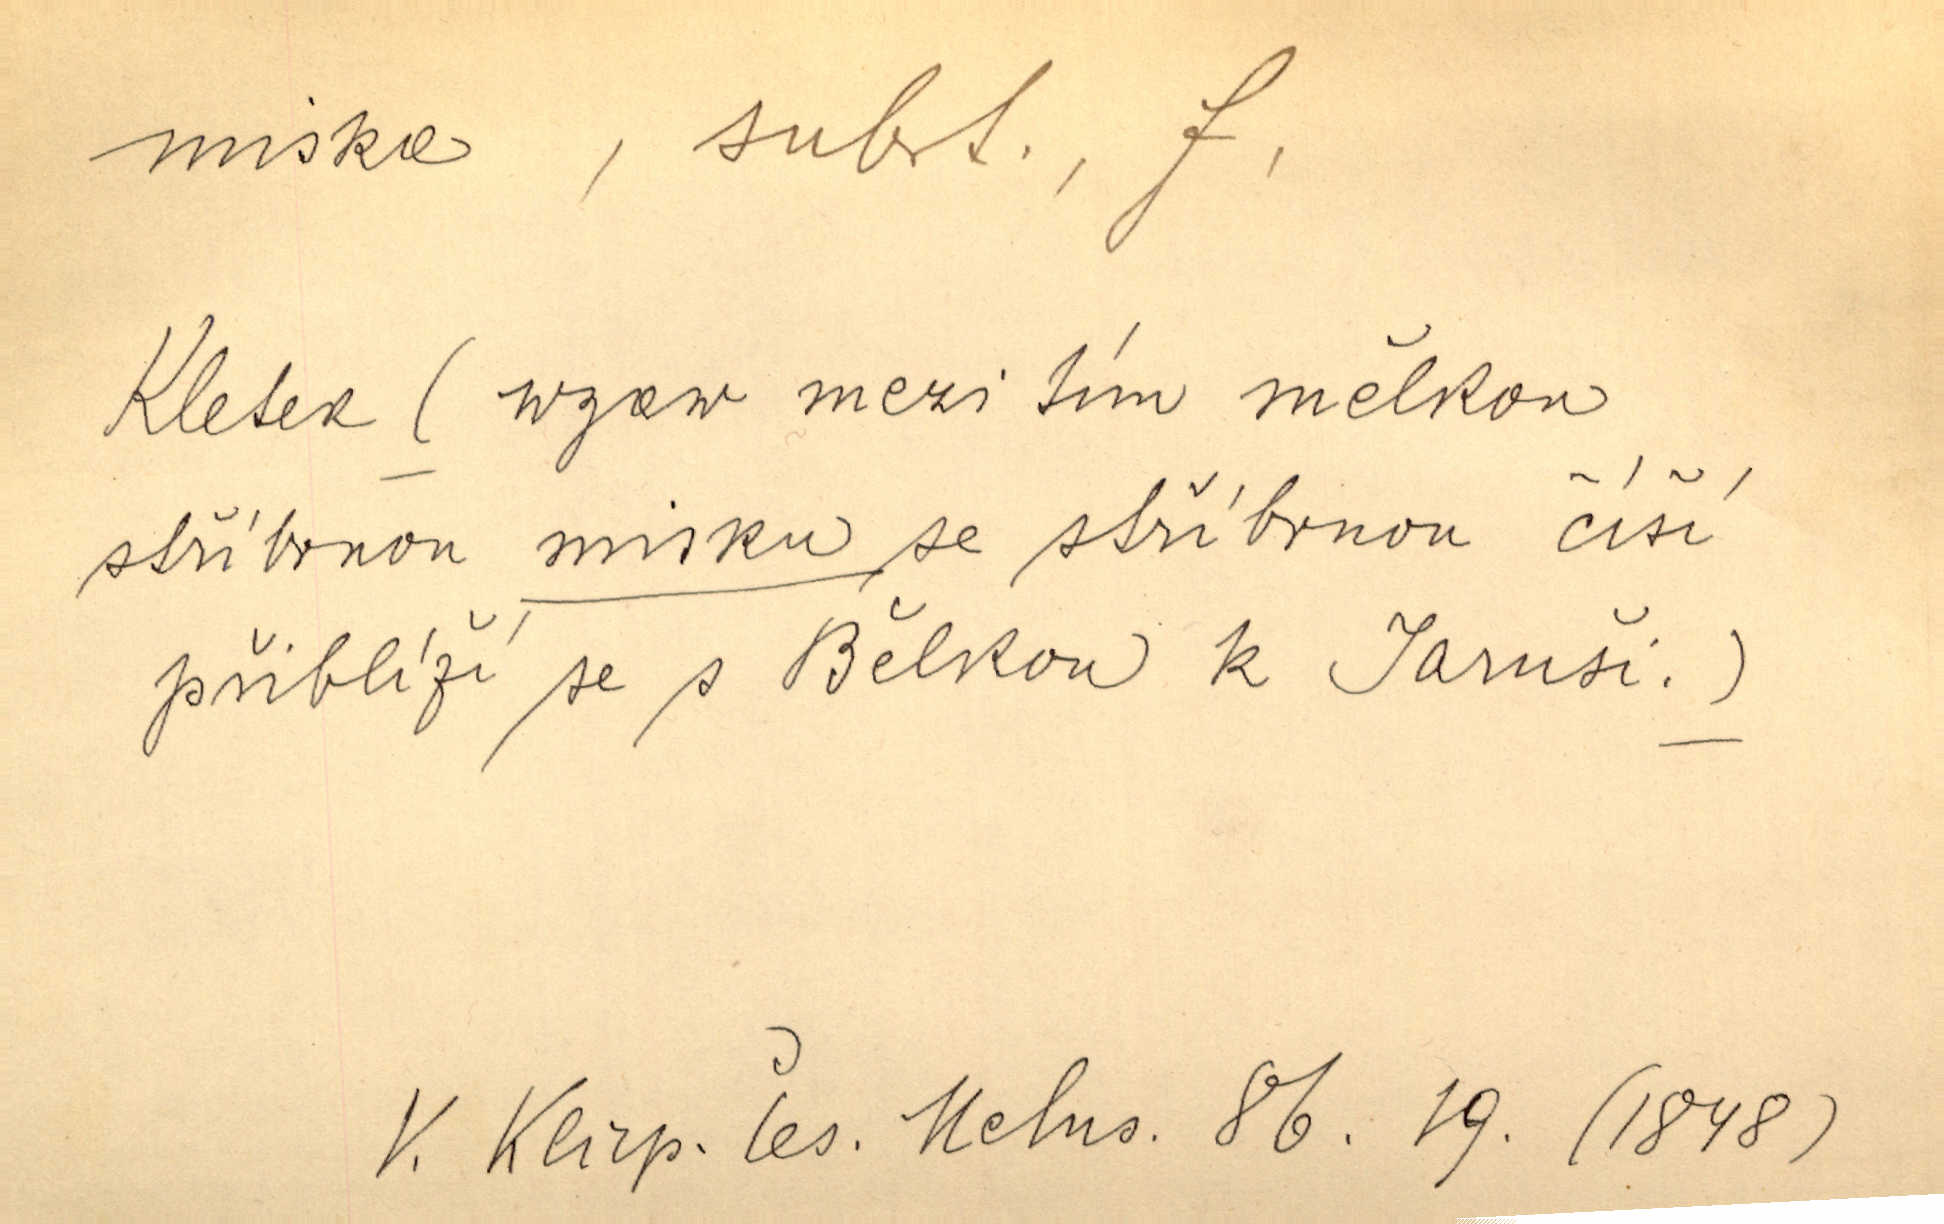 miska, subst., f.
Kletek ( wzaw mezi tím mělkou
stříbrnou misku se stříbrnou číší
přiblíží se s Bělkou k Jaruši. )
V. Klicp. Čes. Melus. 86. 19. (1848)